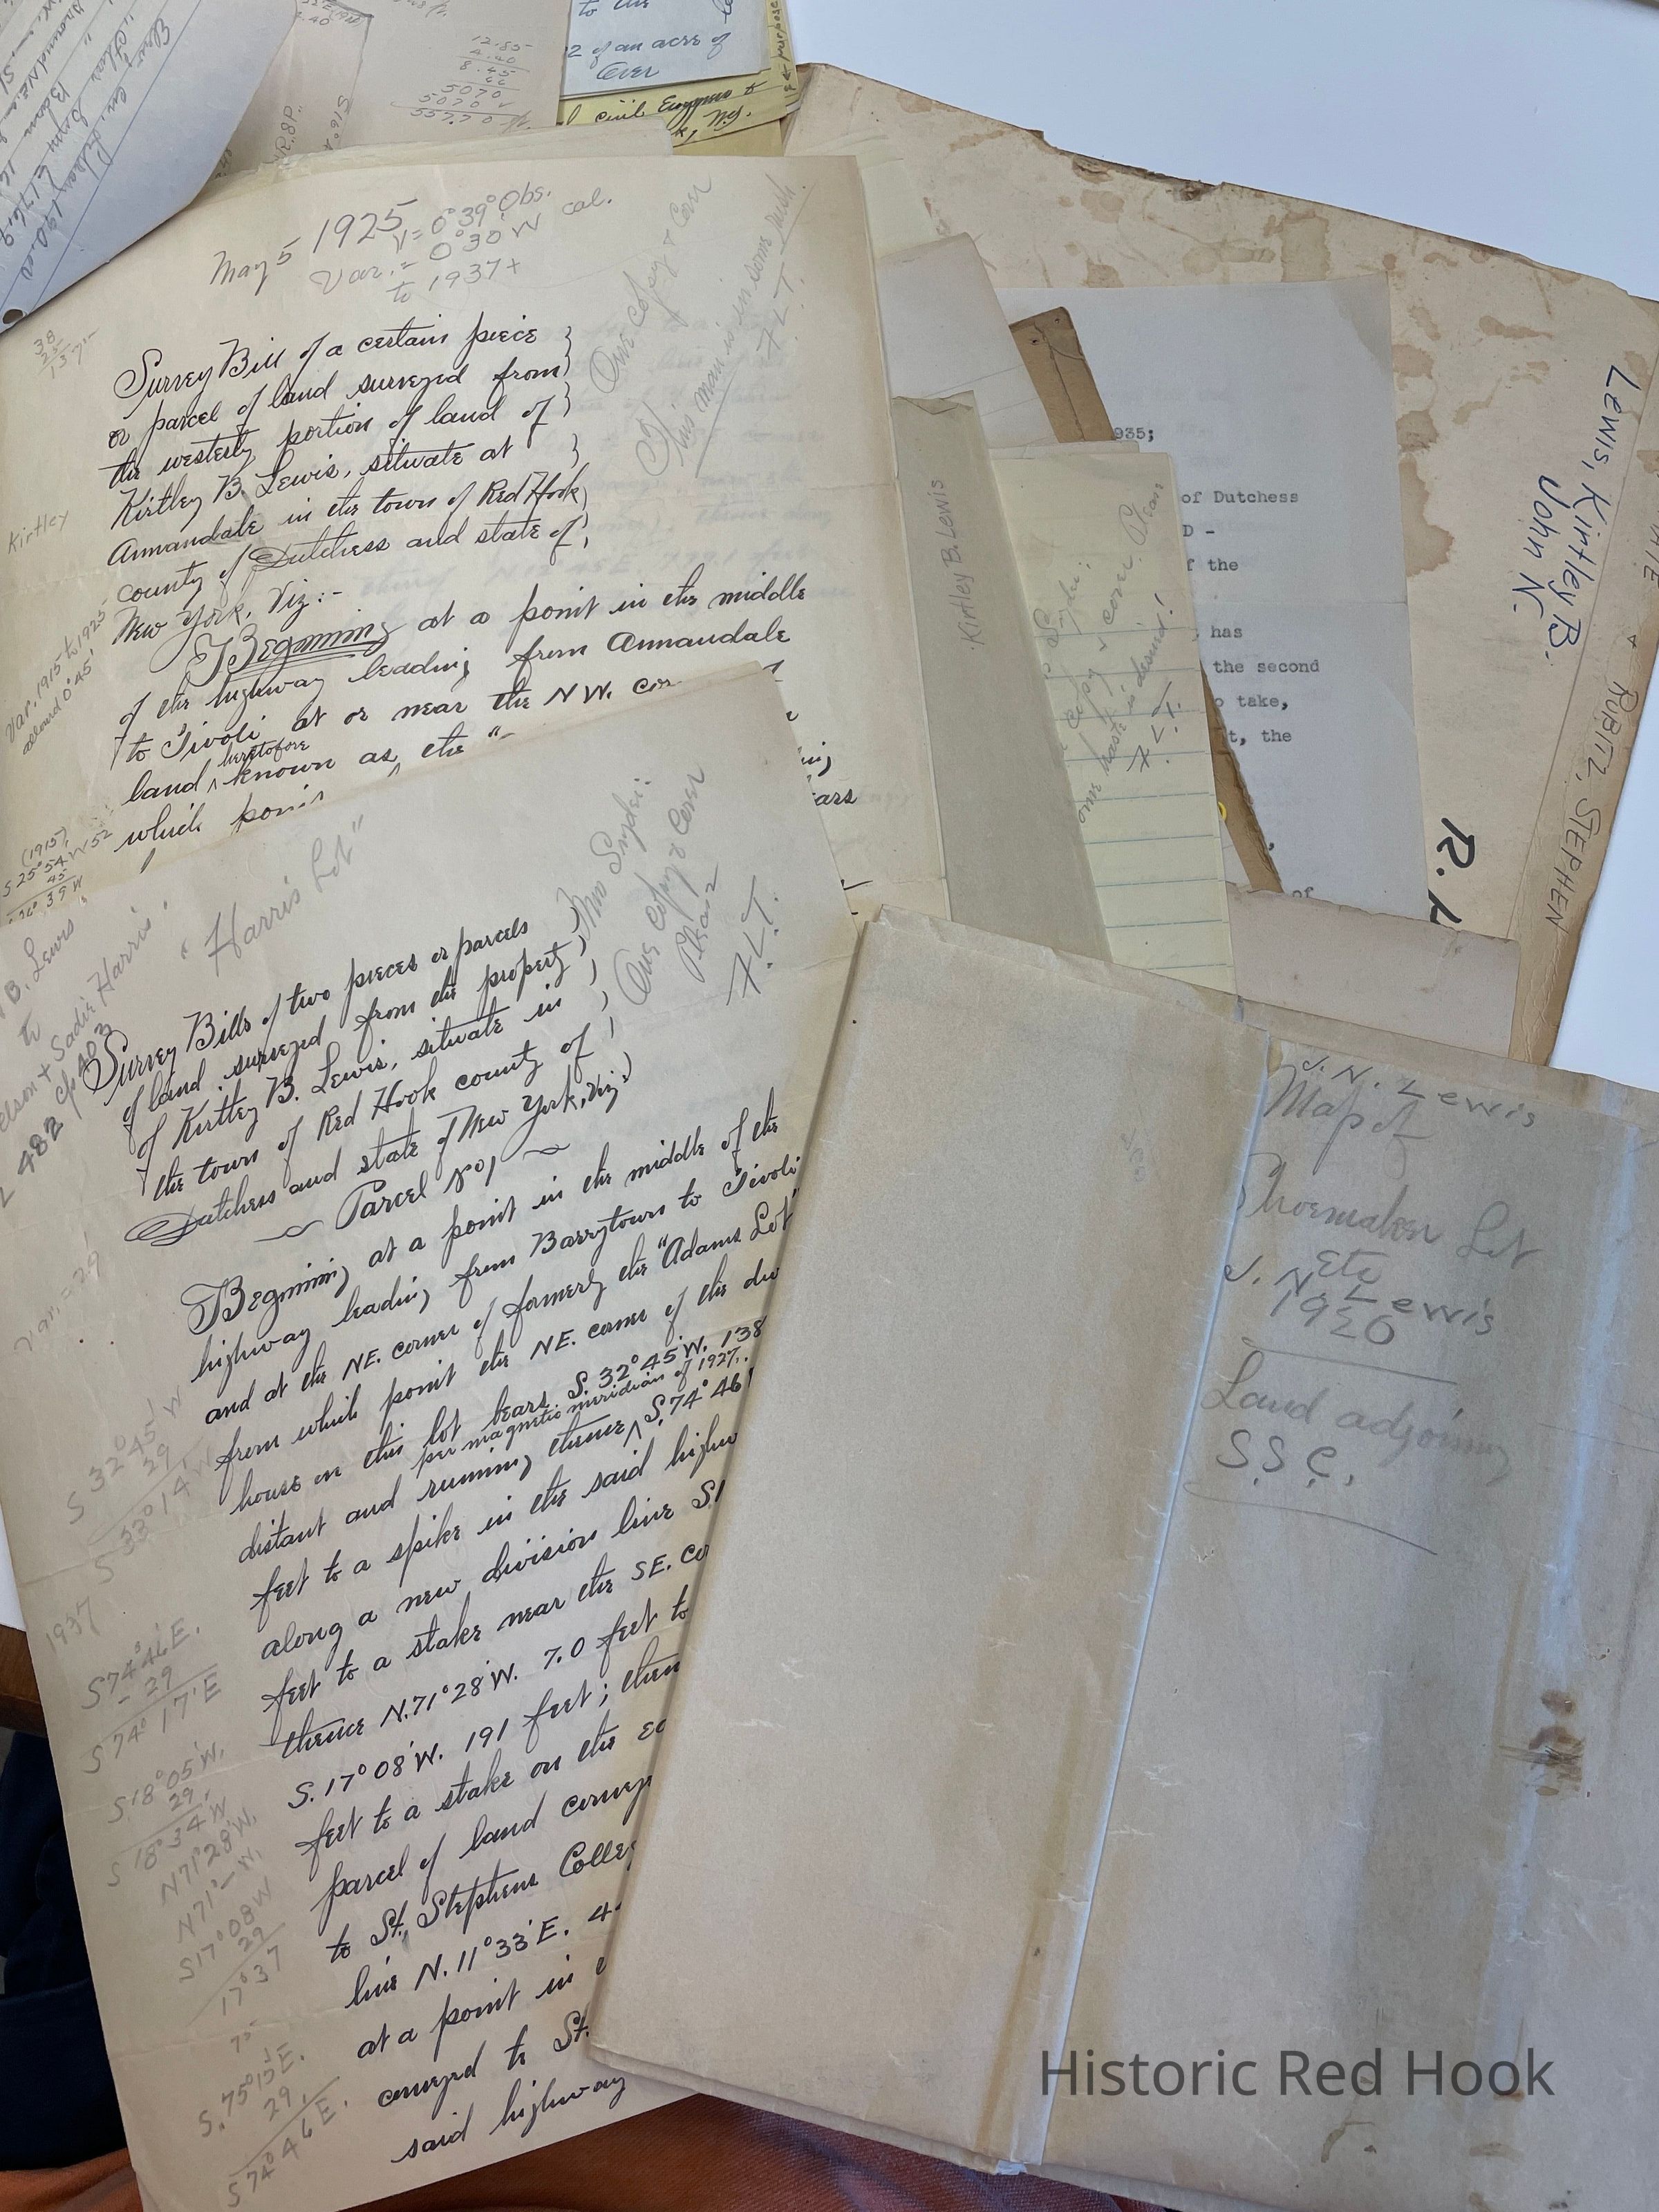 12.85
4.40
8.45
66
5070
5070
557.70
to the
2 of an acre of
Cover
civil Engineer &
N.Y.
May 5 1925
V = 0°39' Obs.
Var. = 0°30' W cal.
to 1937+
One copy & Cover
This man is in some rush.
F.L.T.
Survey Bill of a certain piece
or parcel of land surveyed from
the westerly portion of land of
Kirtley B. Lewis, situate at
Annandale in the town of Red Hook,
county of Dutchess and state of
New York, Viz:-
Kirtley
Beginning at a point in the middle
of the highway leading from Annandale
to Tivoli at or near the NW. cor
heretofore
land known as the "
which point
Var. 1915 to 1925
allowed 0°45'
(1915)
S 25°54' W 52
45
26°39' W
B. Lewis
to
elson & Sadie Harris.
482 cp 403
"Harris Lot"
Miss Snyder:
One copy & Cover
Please
F.L.T.
Survey Bills of two pieces or parcels
of land surveyed from the property
of Kirtley B. Lewis, situate in
the town of Red Hook county of
Dutchess and state of New York, Viz:
Parcel No 1
Beginning at a point in the middle of the
highway leading from Barrytown to Tivoli
and at the NE. corner of formerly the "Adams Lot"
from which point the NE. corner of the dw
house on this lot bears S. 32°45' W. 138
per magnetic meridian of 1927.
distant and running thence S. 74°46'
feet to a spike in the said highw
along a new division line S1
feet to a stake near the SE. co
thence N. 71°28' W. 7.0 feet to
S. 17°08' W. 191 feet; then
feet to a stake on the ea
parcel of land convey
to St. Stephens Colleg
line N. 11°33' E. 4
at a point in
conveyed to St.
said highway
Var. = 29'
S 32°45' W
29
S 33°14' W
1937
S 74°46' E.
- 29
S 74° 17' E
S 18°05' W.
29
S 18°34' W
N 71°28' W.
N 71° - W.
S 17°08' W
29
17°37
S. 75°15' E.
29
S 74°46' E.
Kirtley B. Lewis
Snyder:
copy & cover Please
some haste is desired!
F.L.T.
935;
of Dutchess
D -
f the
has
the second
o take,
t, the
of
Lewis, Kirtley B.
John N.
RUBITZ, STEPHEN
R.
J. N. Lewis
Map of
Shoemaker Lot
Etc
J. N. Lewis
1920
Land adjoining
S.S.C.
Historic Red Hook